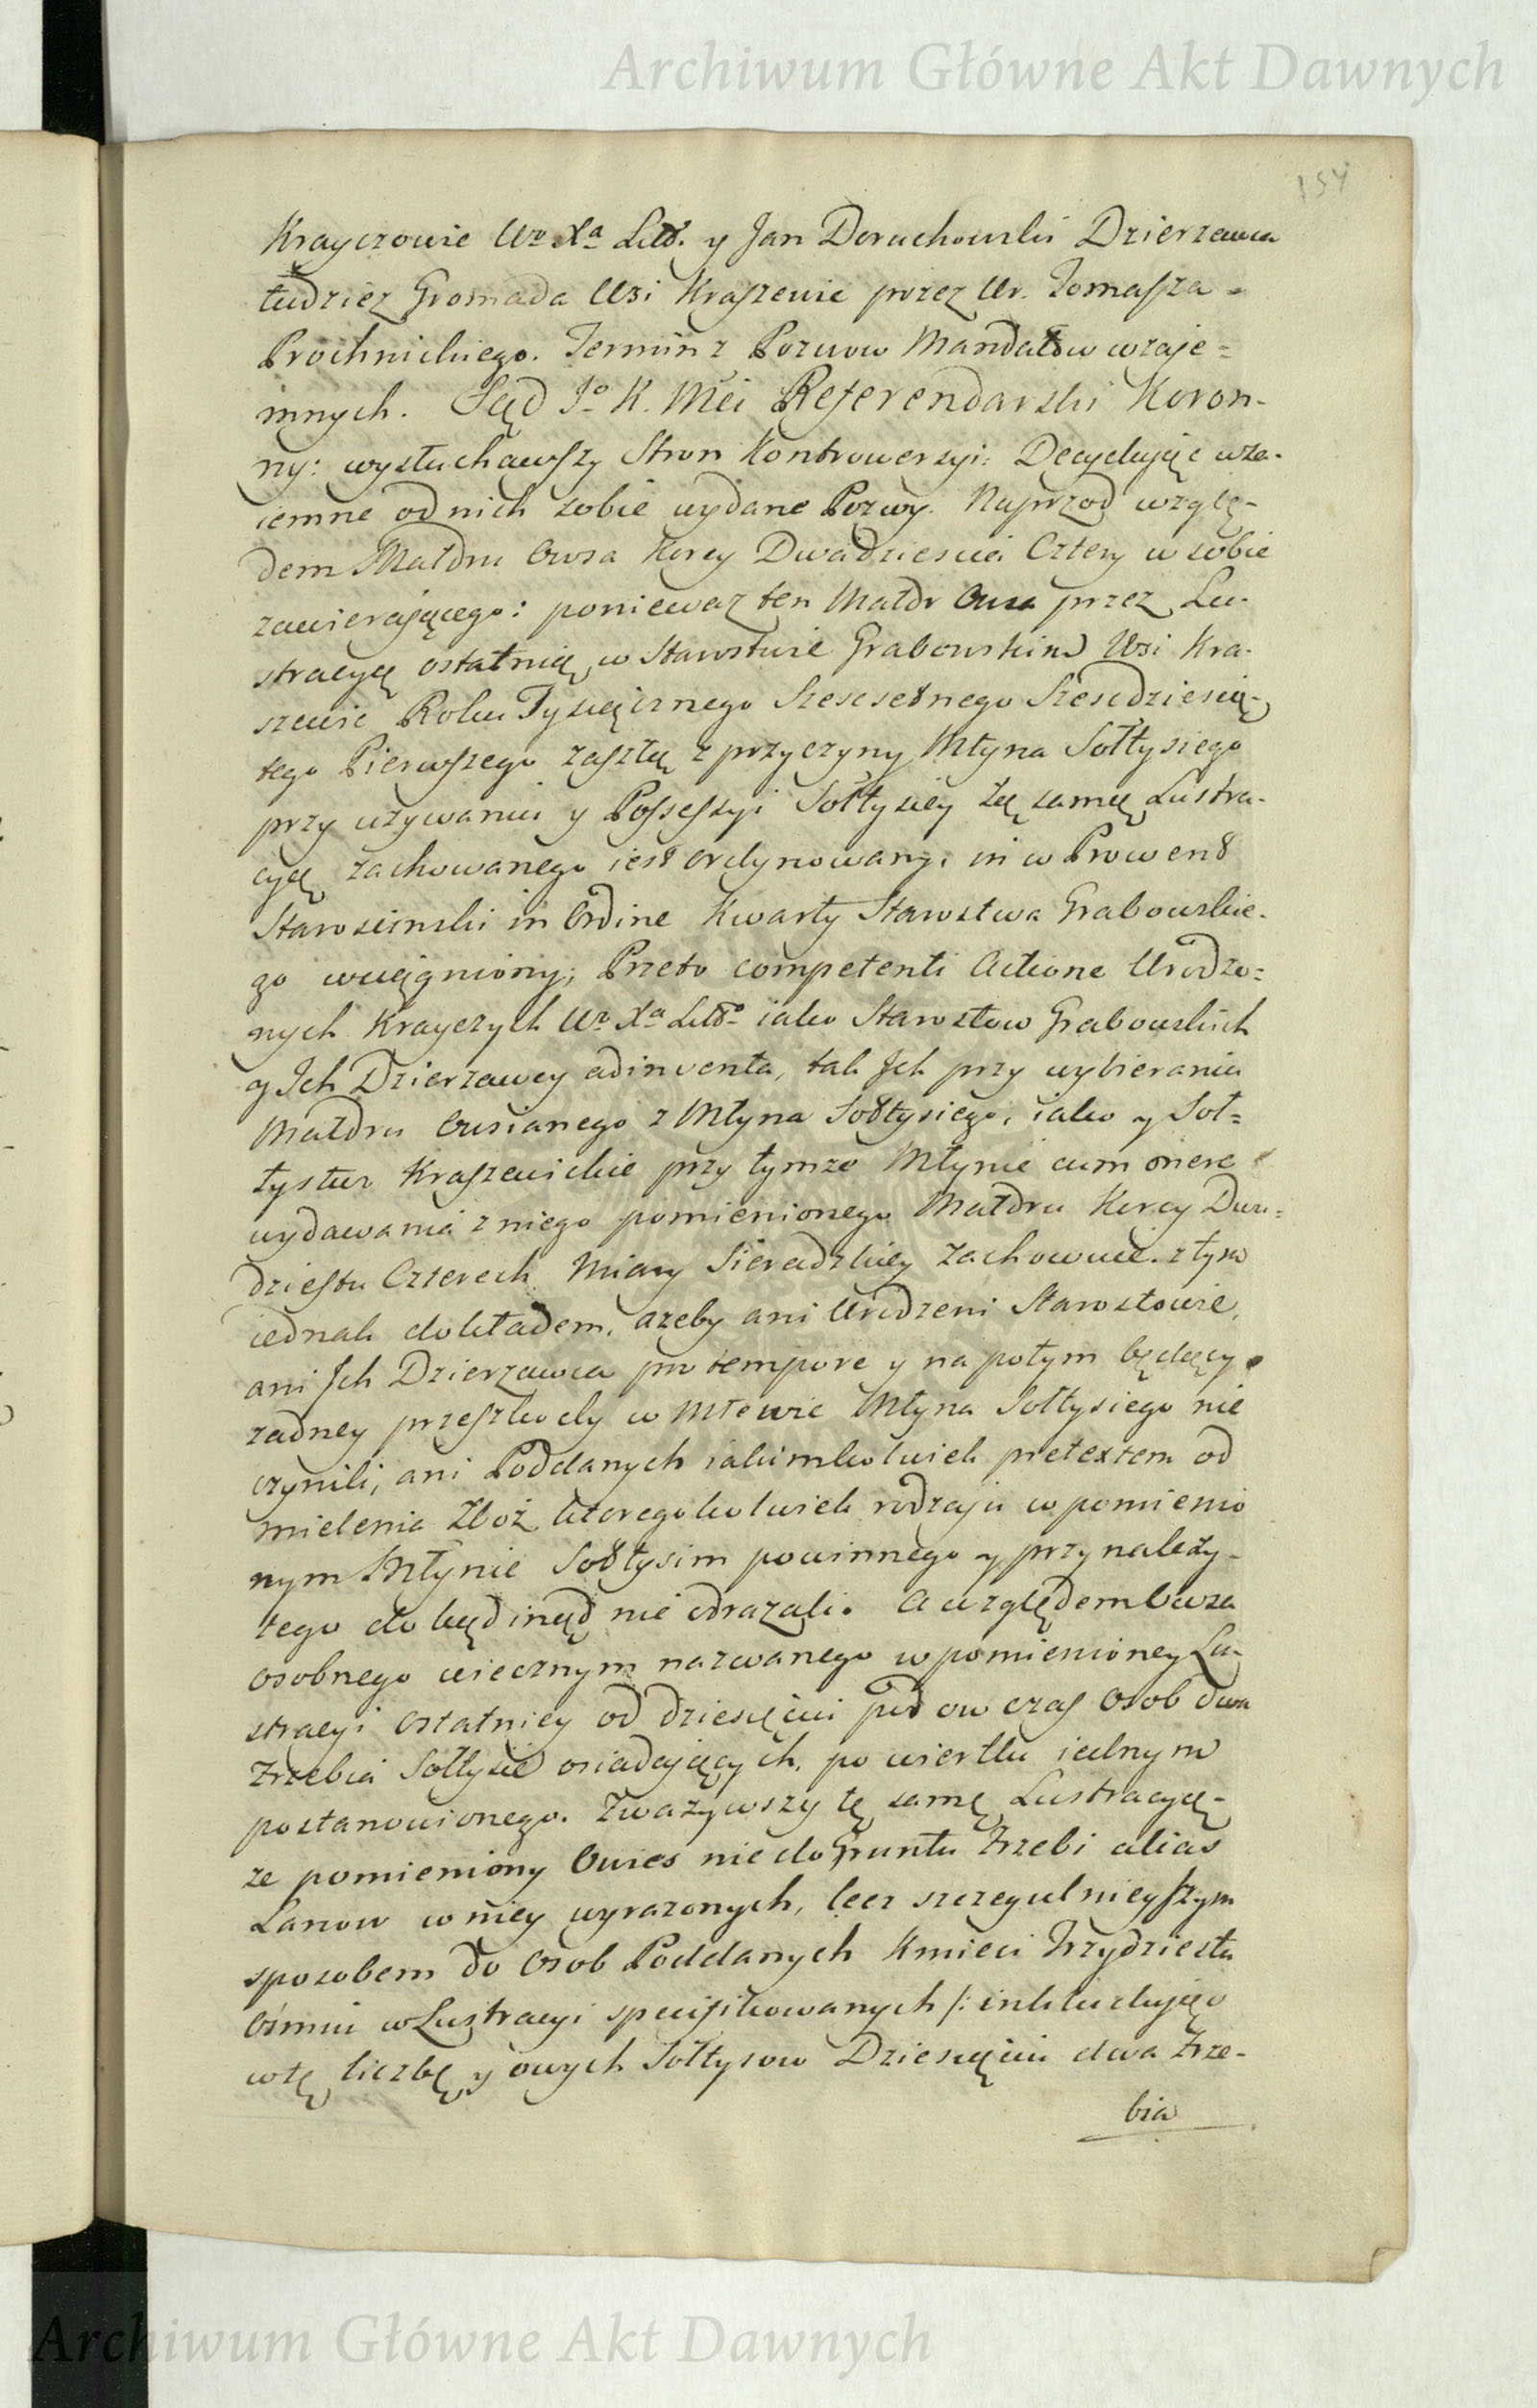 Archiwum Główne Akt Dawnych
154
Krayczowie Wo Xa Litt. y Jan Doruchowski Dzierzawca
tudziez Gromada Wsi Kraszewic przez Ur. Tomasza -
Prochnickiego. Termin z Pozwow Mandatow wzaje=
mnych. Sąd Jo K. Mci Referendarski Koron-
ny: wysłuchawszy Stron Kontrowersyi: Decyduiąc wza-
iemne od nich sobie wydane Pozwy. Naprzod wzglę-
dem Małdru Owsa Korcy Dwadziescia Cztery w sobie
zawierającego: poniewaz ten Małdr Owsa przez Lu-
stracyą ostatnią w Starostwie Grabowskim Wsi Kra-
szewic Roku Tysiącznego Szescsetnego Szescdziesią-
tego Pierwszego zaszłą z przyczyny Młyna Sołtysiego
przy uzywaniu y Possessyi Sołtysiey tą samą Lustra-
cyą zachowanego iest ordynowany, i w Prowent
Starosciński in Ordine Kwarty Starostwa Grabowskie-
go wciągniony, Przeto competenti Actione Urodzo=
nych Krayczych Wo Xa Litto iako Starostow Grabowskich
y Ich Dzierzawcy adinventa, tak Ich przy wybieraniu
Małdru Owsianego z Młyna Sołtysiego, iako y Soł=
tystwa Kraszewickie przy tymze Młynie cum onere
wydawania z niego pomienionego Małdru Korcy Dwu=
dziestu Czterech Miary Sieradzkiey zachowuie. z tym
iednak dokładem, azeby ani Urodzeni Starostowie,
ani Ich Dzierzawca pro tempore y na potym będący
zadney przeszkody w Mlewie Młyna Sołtysiego nie
czynili, ani Poddanych iakimkolwiek pretextem od
mielenia Zboz ktoregokolwiek rodzaju w pomienio
nym Młynie Sołtysim powinnego y przynalezy-
tego do kąd inąd nie odrazali. A względem Owsa
osobnego wiecznym nazwanego w pomienioney Lu-
stracyi ostatniey od dziesięciu pod ow czas Osob dwa
Zrzebia Sołtysie osiadających, po wiertlu iednym
postanowionego. Zwazywszy tę samę Lustracyą-
ze pomieniony Owies nie do Gruntu Zrzebi alias
Lanow w niey wyrazonych, lecz szczegulnieyszym
sposobem do Osob Poddanych Kmieci Trzydziestu
Osmiu w Lustracyi specifikowanych /: inkluduiąc
w tę liczbę y owych Sołtysow Dziesięciu dwa Zrze-
bia
Archiwum Główne Akt Dawnych